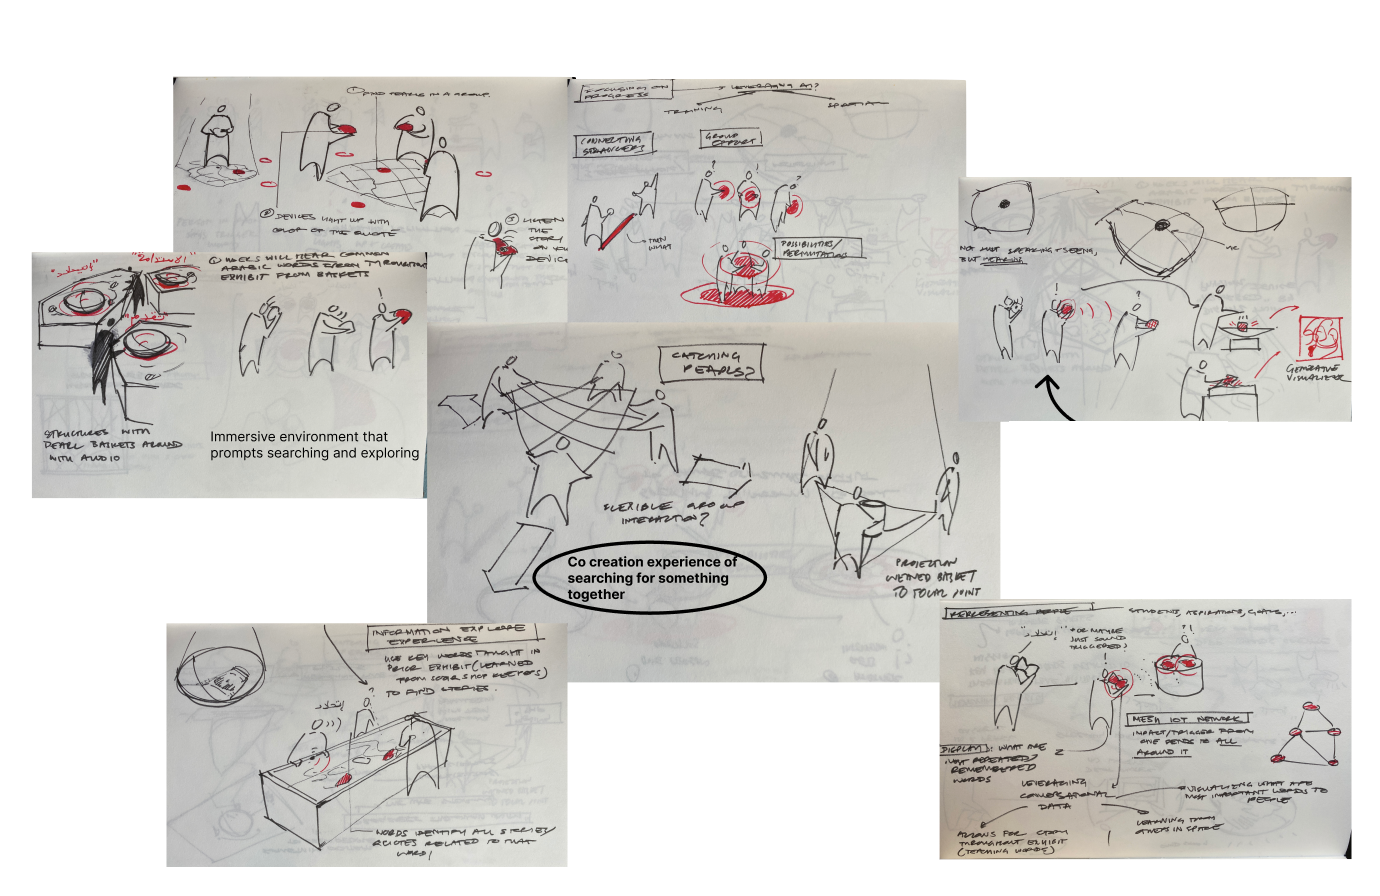 FIND PEARLS IN A GROUP.
② DEVICES LIGHT UP WITH
COLOR OF THE QUOTE
③ LISTEN
THE
STORY
ON YOUR
DEVICE
FOCUSING ON
PROGRESS
LEVERAGING AI?
TRAINING
SPATIAL
CONNECTING
STRANGERS
GROUP
EFFORT
THEN
WHAT
POSSIBILITIES/
PERMUTATIONS
NOT JUST SPEAKING + SEEING,
BUT HEARING
GENERATIVE
VISUALIZER
① USERS WILL HEAR COMMON
ARABIC WORDS FROM THROUGHOUT
EXHIBIT FROM BASKETS
STRUCTURES WITH
PEARL BASKETS AROUND
WITH AUDIO
Immersive environment that
prompts searching and exploring
CATCHING
PEARLS?
FLEXIBLE GROUP
INTERACTION?
Co creation experience of
searching for something
together
PROJECTION
BASKET
TO FOCAL POINT
INFORMATION EXPLORE
EXPERIENCE
USE KEY WORDS TAUGHT IN
PRIOR EXHIBIT (LEARNED
FROM SHOP KEEPERS)
TO FIND STORIES.
إتحاد
WORDS IDENTIFY ALL STORIES/
QUOTES RELATED TO THAT
WORD!
REPRESENTING PEOPLE
STUDENTS, ASPIRATIONS, GOALS, ...
"إتحاد"
(OR MAYBE
JUST SOUND
TRIGGERED)
MESH IOT NETWORK
IMPACT/TRIGGER FROM
ONE SENDS TO ALL
AROUND IT
DISPLAY: WHAT ARE
MOST REPEATED/
REMEMBERED
WORDS
LEVERAGING
CONVERSATIONAL
DATA
VISUALIZING WHAT ARE
MOST IMPORTANT WORDS TO
PEOPLE
LEARNING FROM
OTHERS IN SPACE
ALLOWS FOR
THROUGHOUT EXHIBIT
(TEACHING WORDS)